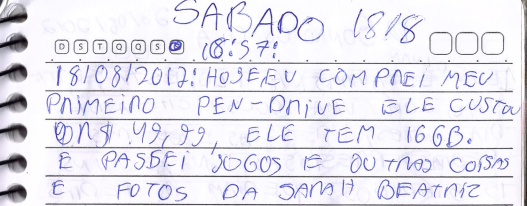 SABADO 18/8
D S T Q Q S S 18:57:
18/08/2012: HOJE EU COMPREI MEU
PRIMEIRO PEN-DRIVE ELE CUSTOU
R$ 49,99, ELE TEM 16GB.
E PASSEI JOGOS E OUTRAS COISAS
E FOTOS DA SARAH BEATRIZ